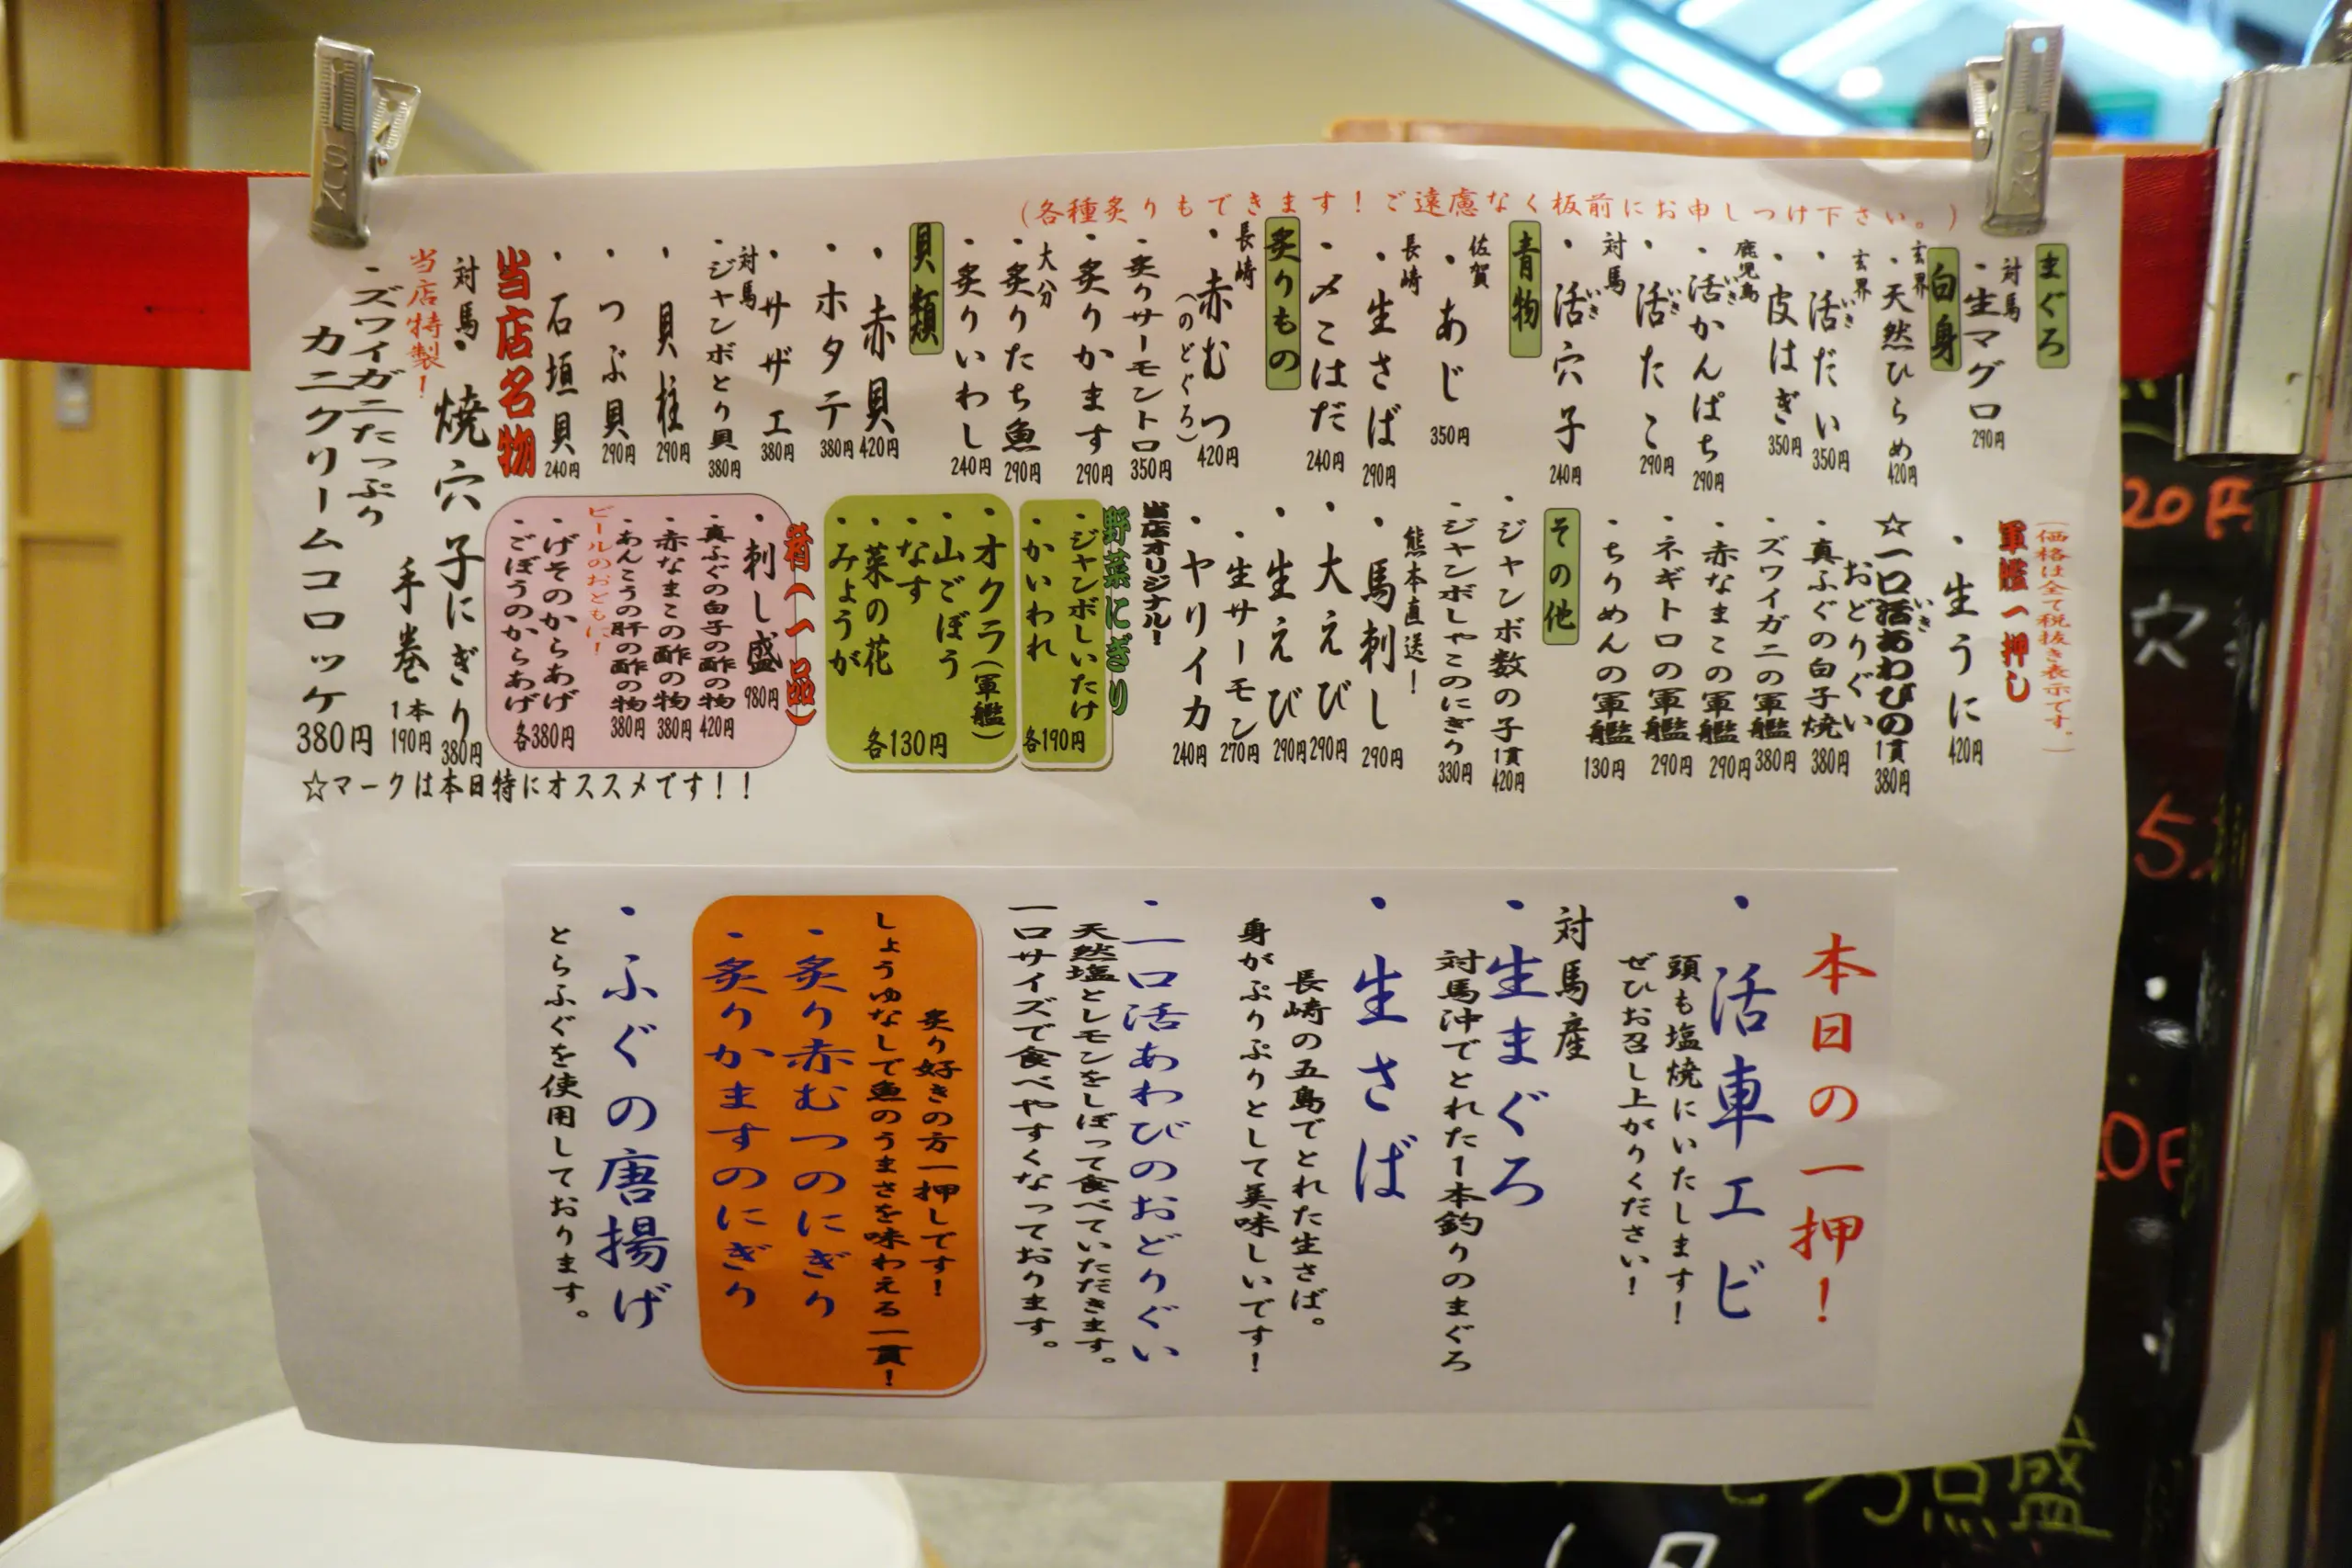 (各種炙りもできます！ご遠慮なく板前にお申しつけ下さい。)
まぐろ
対馬
・生マグロ 290円
白身
玄界
・天然ひらめ 420円
玄界
・活だい 350円
いき
・皮はぎ 350円
鹿児島
・活かんぱち 290円
いき
・活たこ 290円
いき
対馬
・活穴子 240円
いき
青物
佐賀
・あじ 350円
長崎
・生さば 290円
・〆こはだ 240円
炙りもの
長崎
・赤むつ 420円
(のどぐろ)
・炙りサーモントロ 350円
・炙りかます 290円
大分
・炙りたち魚 290円
・炙りいわし 240円
貝類
・赤貝 420円
・ホタテ 380円
対馬
・サザエ 380円
・ジャンボとり貝 380円
・貝柱 290円
・つぶ貝 290円
・石垣貝 240円
当店名物
対馬・焼穴子にぎり 380円
手巻 1本 190円
当店特製！
・ズワイガニたっぷり
カニクリームコロッケ 380円
(価格は全て税抜き表示です。)
軍艦一押し
・生うに 420円
☆一口活あわびの 1貫 380円
いき
おどりぐい
・真ふぐの白子焼 380円
・ズワイガニの軍艦 380円
・赤なまこの軍艦 290円
・ネギトロの軍艦 290円
・ちりめんの軍艦 130円
その他
・ジャンボ数の子 1貫 420円
・ジャンボしゃこのにぎり 330円
熊本直送！
・馬刺し 290円
・大えび 290円
・生えび 290円
・生サーモン 270円
・ヤリイカ 240円
当店オリジナル！
野菜にぎり
・ジャンボしいたけ
・かいわれ
各190円
・オクラ(軍艦)
・山ごぼう
・なす
・菜の花
・みょうが
各130円
肴(一品)
・刺し盛 980円
・真ふぐの白子の酢の物 420円
・赤なまこの酢の物 380円
・あんこうの肝の酢の物 380円
ビールのおともに！
・げそのからあげ
・ごぼうのからあげ
各380円
☆マークは本日特にオススメです！！
本日の一押！
・活車エビ
頭も塩焼にいたします！
ぜひお召し上がりください！
対馬産
・生まぐろ
対馬沖でとれた1本釣りのまぐろ
・生さば
長崎の五島でとれた生さば。
身がぷりぷりとして美味しいです！
・一口活あわびのおどりぐい
天然塩とレモンをしぼって食べていただきます。
一口サイズで食べやすくなっております。
炙り好きの方一押しです！
しょうゆなしで魚のうまさを味わえる一貫！
・炙り赤むつのにぎり
・炙りかますのにぎり
・ふぐの唐揚げ
とらふぐを使用しております。
20円
穴
5
0円
点盛